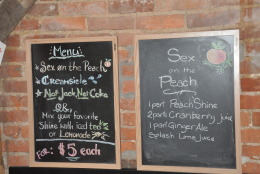 Menu:
Sex on the Peach
Creamsicle
Not Jack, Not Coke
OR
Mix your favorite
Shine with iced tea
or Lemonade
For: $5 each
Sex
on the
Peach
1 part PeachShine
2 parts Cranberry Juice
1 part Ginger Ale
Splash Lime Juice